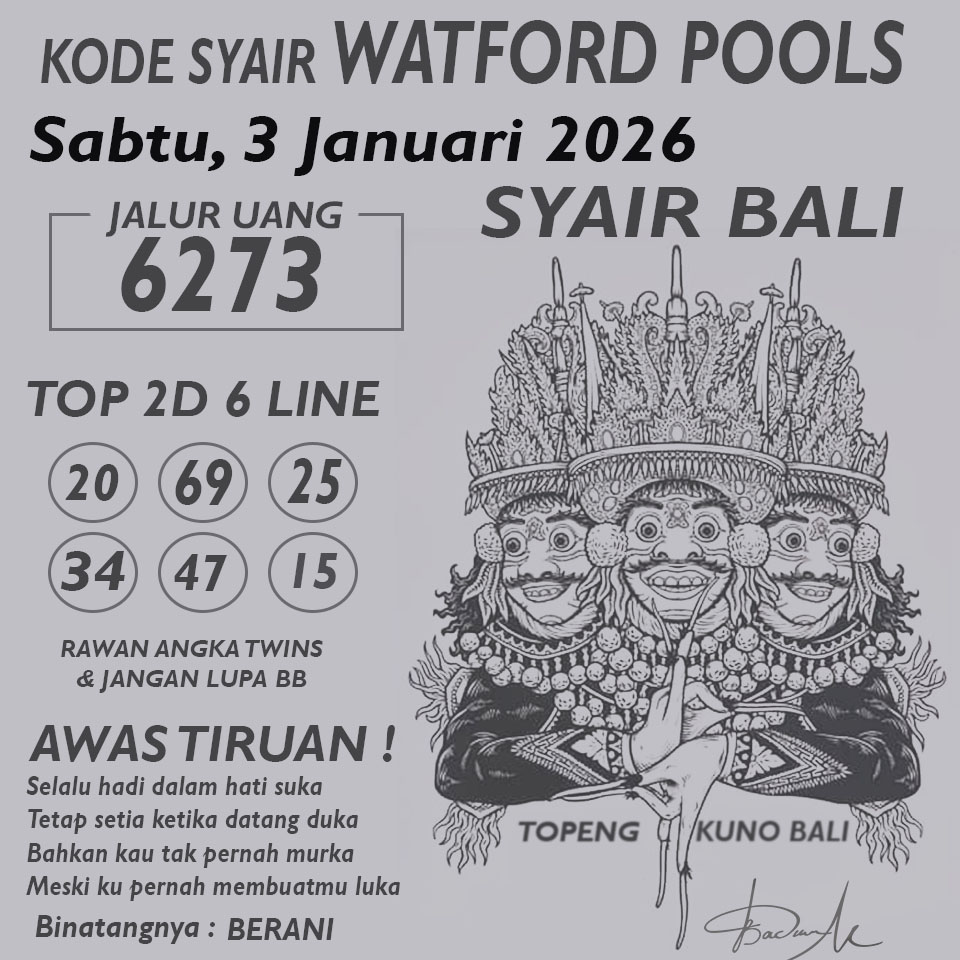 KODE SYAIR WATFORD POOLS
Sabtu, 3 Januari 2026
SYAIR BALI
JALUR UANG
6273
TOP 2D 6 LINE
20 69 25
34 47 15
RAWAN ANGKA TWINS
& JANGAN LUPA BB
AWAS TIRUAN !
Selalu hadi dalam hati suka
Tetap setia ketika datang duka
Bahkan kau tak pernah murka
Meski ku pernah membuatmu luka
Binatangnya : BERANI
TOPENG KUNO BALI